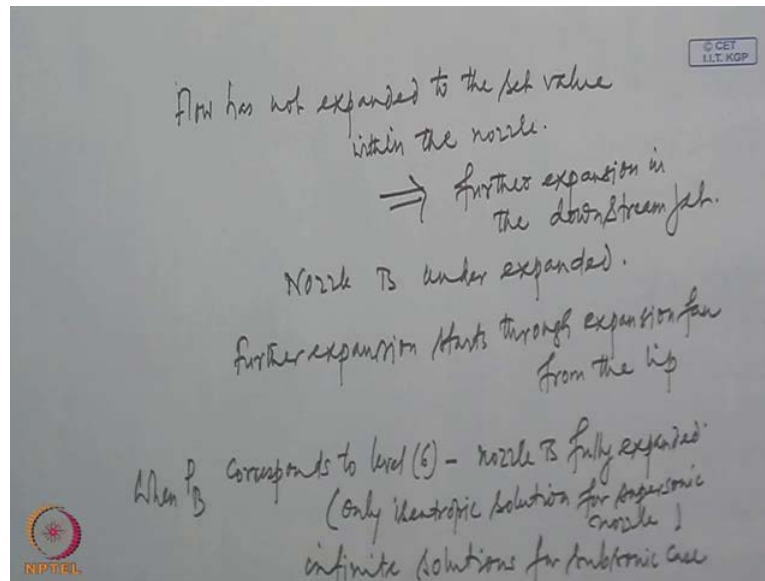 © CET
I.I.T. KGP
Flow has not expanded to the set value
within the nozzle.
⇒ further expansion in
the downstream jet.
Nozzle is under expanded.
further expansion starts through expansion fan
from the lip
When P_B corresponds to level (6) - nozzle is fully expanded
(only isentropic solution for supersonic
nozzle)
infinite solutions for subsonic case
NPTEL